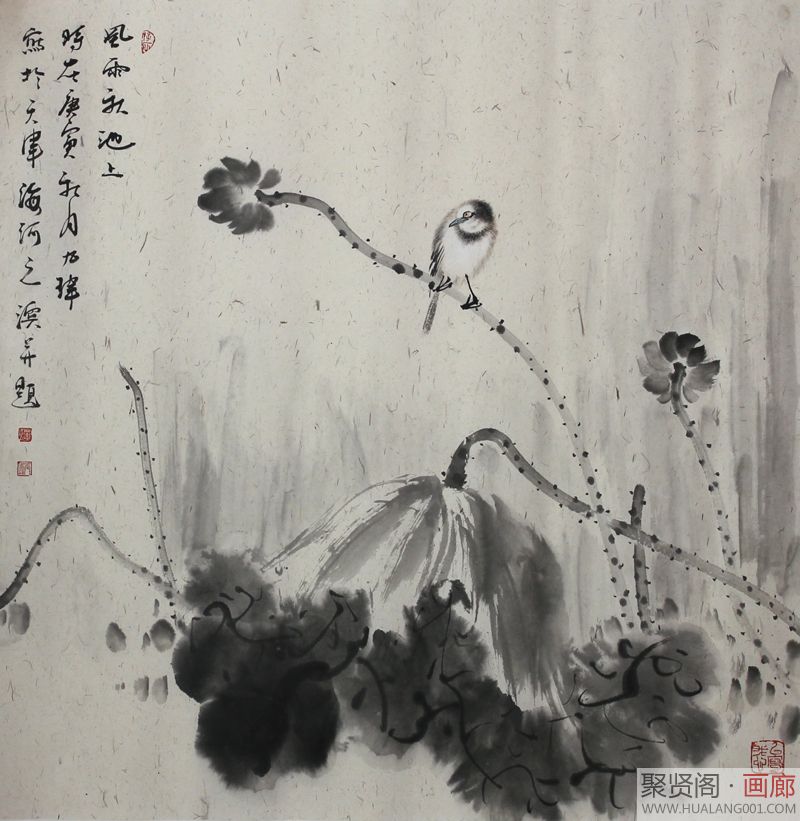 風雨秋池上
時在庚寅秋月九瑋
寫於天津海河之濱并題
聚贤阁·画廊
WWW.HUALANG001.COM